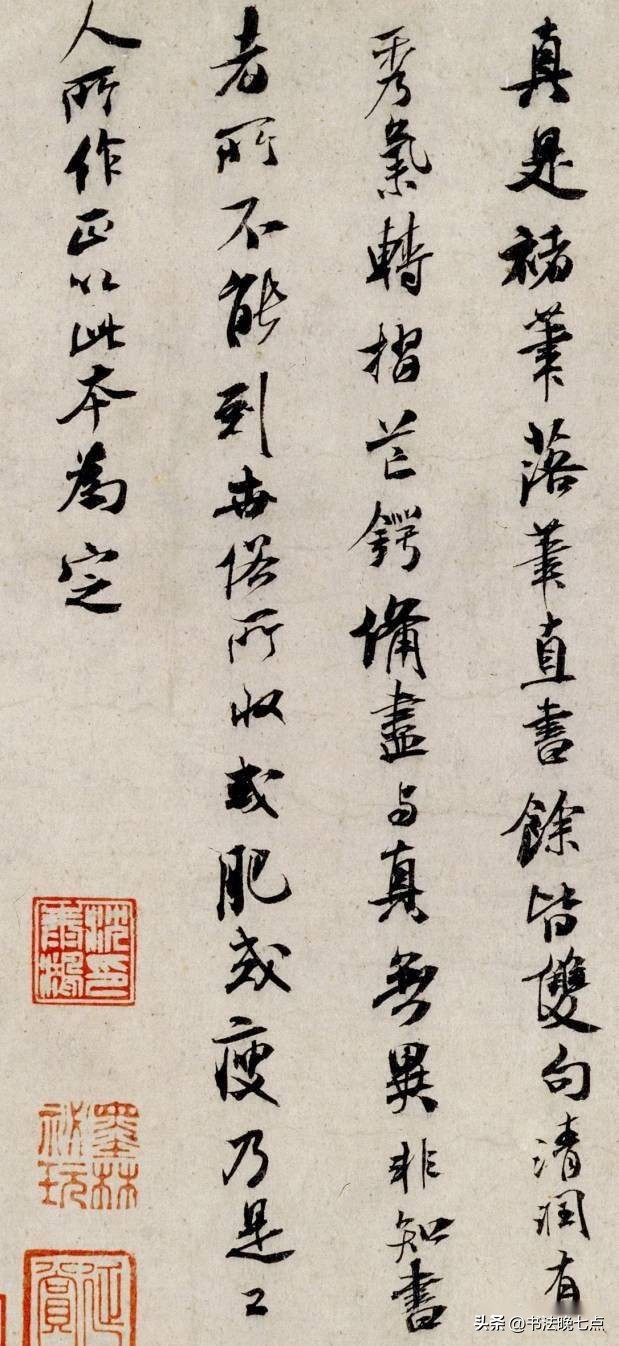 真是褚筆落筆直書餘皆雙句清潤有
秀氣轉摺芒鍔備盡与真無異非知書
者所不能到世俗所收或肥或瘦乃是工
人所作正以此本為定
墨林
祕玩
头条 @书法晚七点